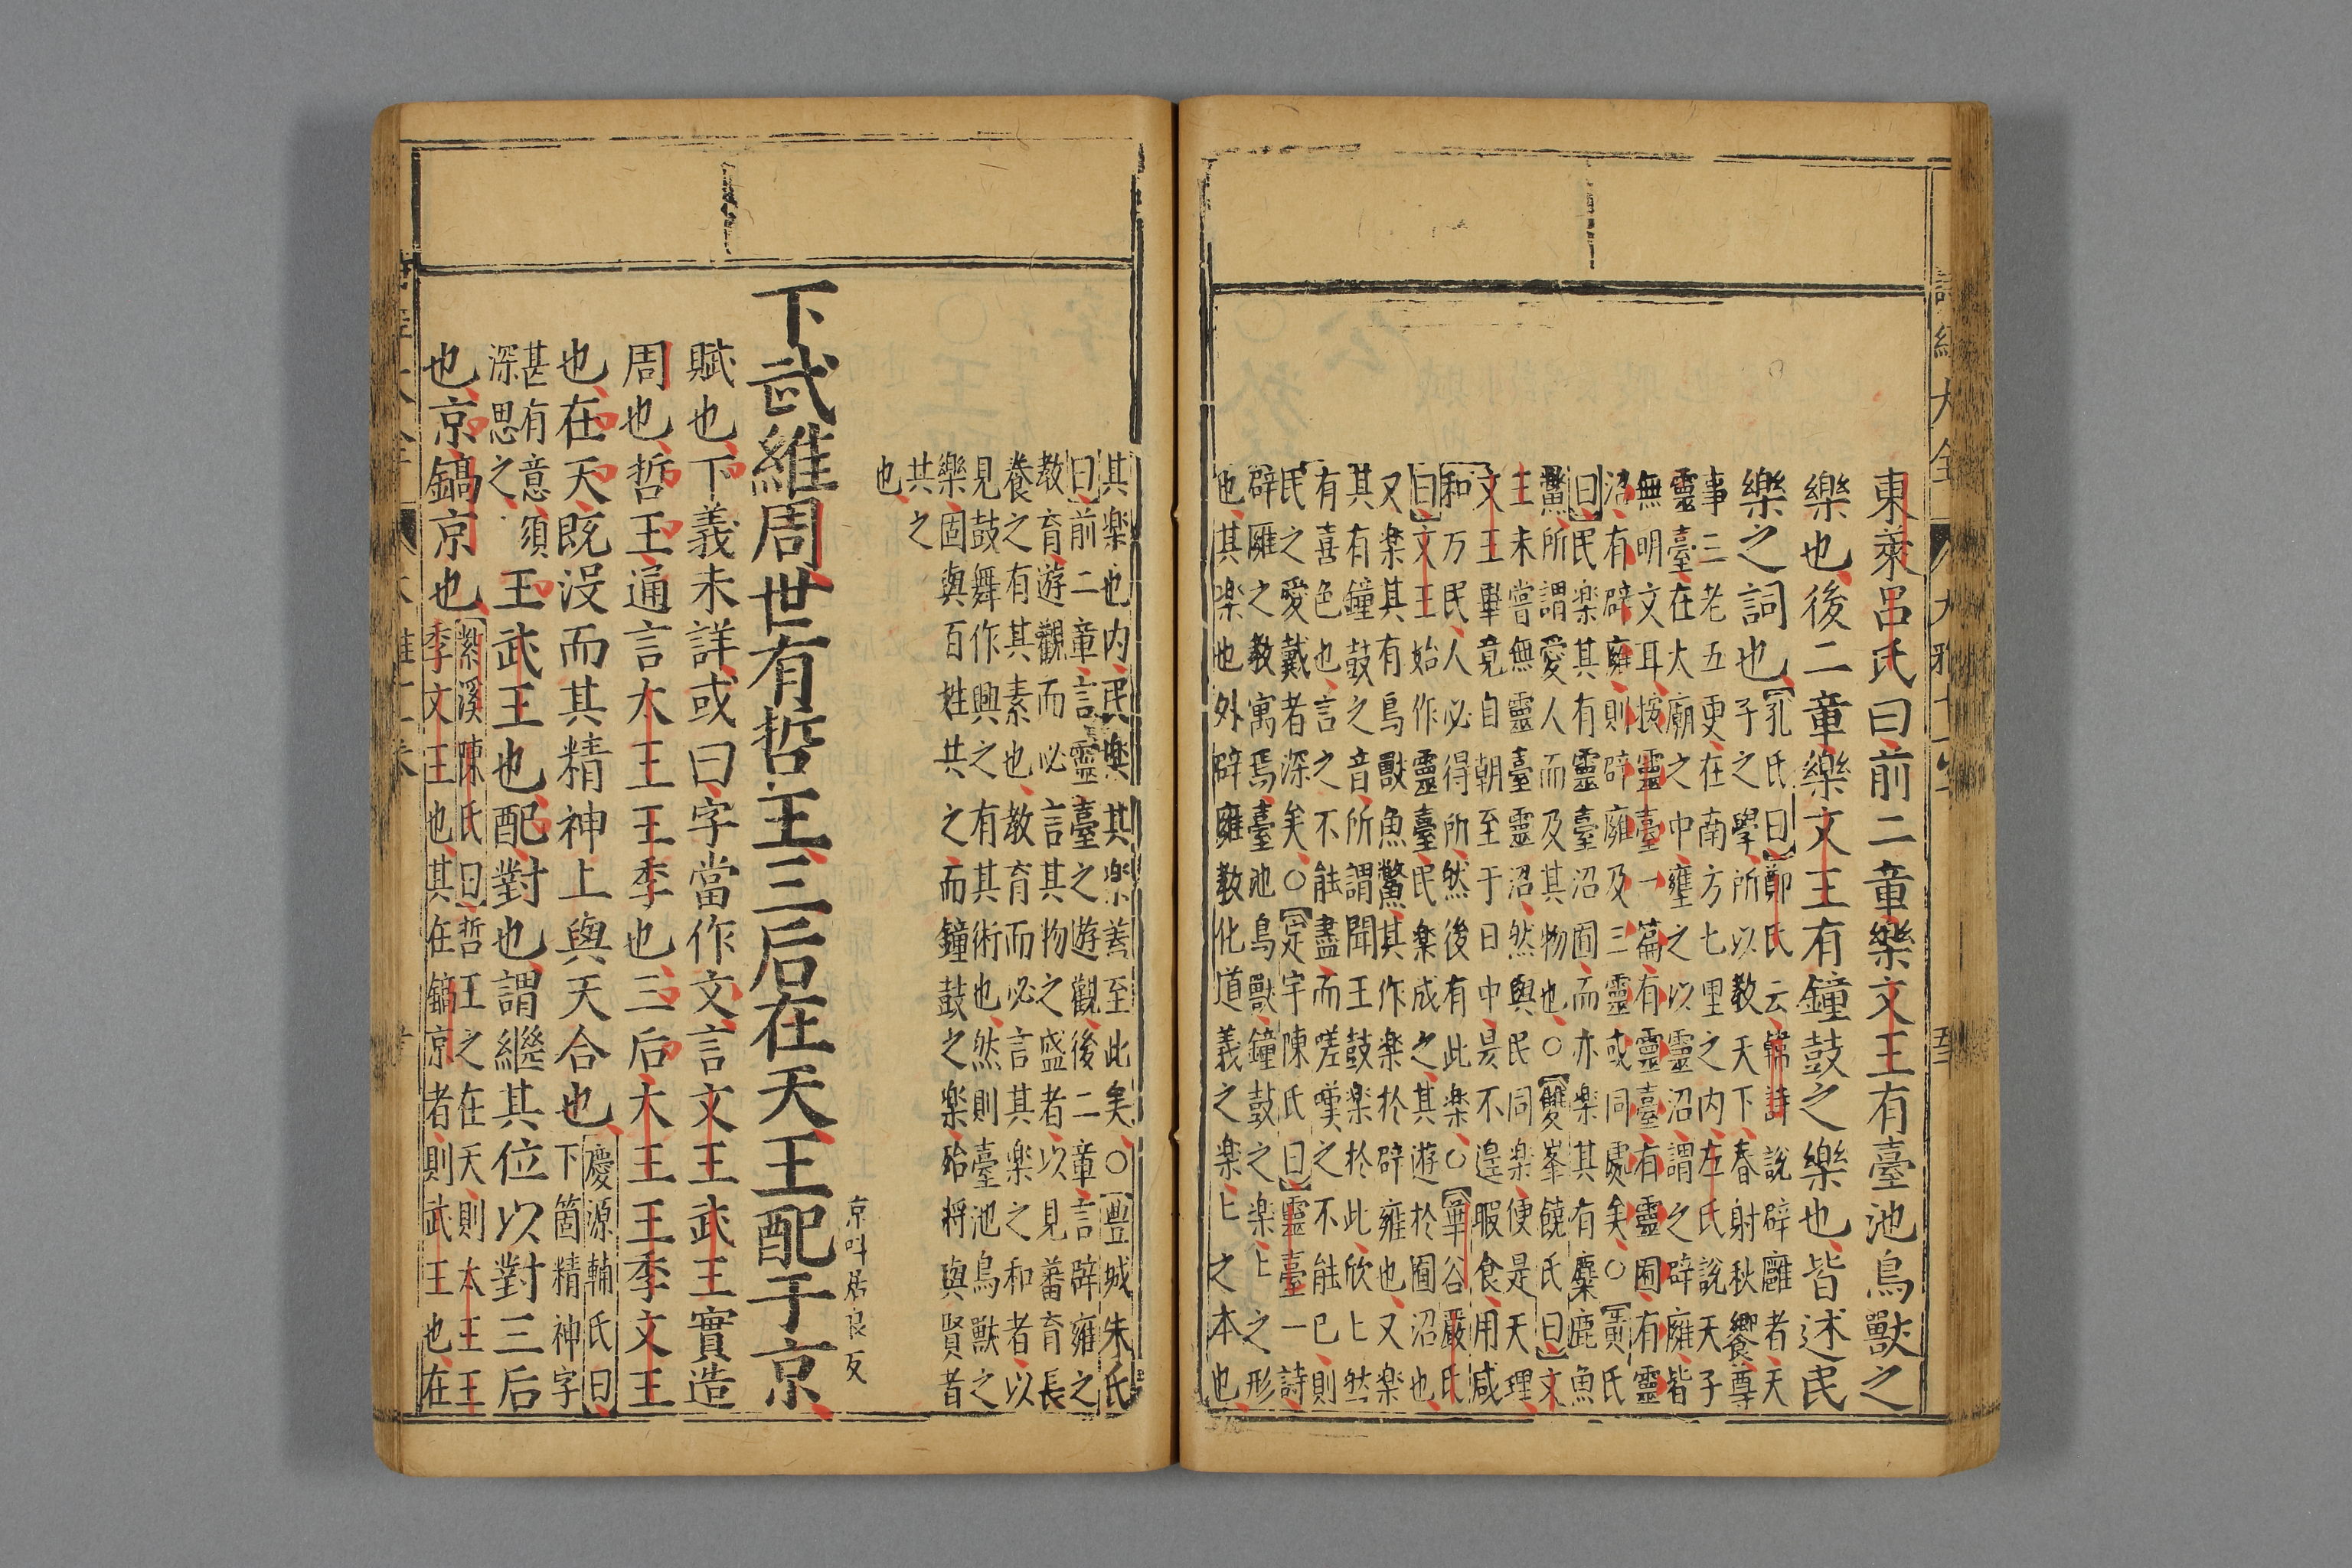 東萊呂氏曰前二章樂文王有臺池鳥獸之
樂也後二章樂文王有鐘鼓之樂也皆述民
樂之詞也
孔氏曰鄭氏云韓詩說辟廱者天
子之學所以教天下春射秋饗尊
事三老五更在南方七里之內左氏說天子
靈臺在太廟之中壅之以靈沼謂之辟廱皆
無明文耳按靈臺一篇有靈臺有靈囿有靈
沼有辟廱則辟廱及三靈或同處矣○黃氏
曰民楽其有靈臺沼囿而亦楽其有麋鹿魚
鱉所謂愛人而及其物也○雙峯饒氏曰文
王未嘗無靈臺靈沼然與民同楽便是天理
文王畢竟自朝至于日中昃不遑暇食用咸
和万民人必得所然後有此楽○華谷嚴氏
曰文王始作靈臺民楽成之其遊於囿沼也
又楽其有鳥獸魚鱉其作楽於辟雍也又楽
其有鐘鼓之音所謂聞王鼓楽於此欣〻然
有喜色也言之不能盡而嗟嘆之不能已則
民之愛戴者深矣○定宇陳氏曰靈臺一詩
辟廱之教寓焉臺池鳥獸鐘鼓之楽〻之形
也其楽也外辟雍教化道義之楽〻之本也
其楽也内民楽其楽盖至此矣○豐城朱氏
曰前二章言靈臺之遊觀後二章言辟雍之
教育遊觀而必言其物之盛者以見蕃育長
養之有其素也教育而必言其楽之和者以
見鼓舞作興之有其術也然則臺池鳥獸之
楽固與百姓共之而鐘鼓之楽殆將與賢者
共之
也
京叶居良反
下武維周世有哲王三后在天王配于京
賦也下義未詳或曰字當作文言文王武王實造
周也哲王通言太王王季也三后太王王季文王
也在天既没而其精神上與天合也
慶源輔氏曰
下箇精神字
甚有意須
深思之
王武王也配對也謂繼其位以對三后
也京鎬京也
絜溪陳氏曰哲王之在天則太王王
季文王也其在鎬京者則武王也在